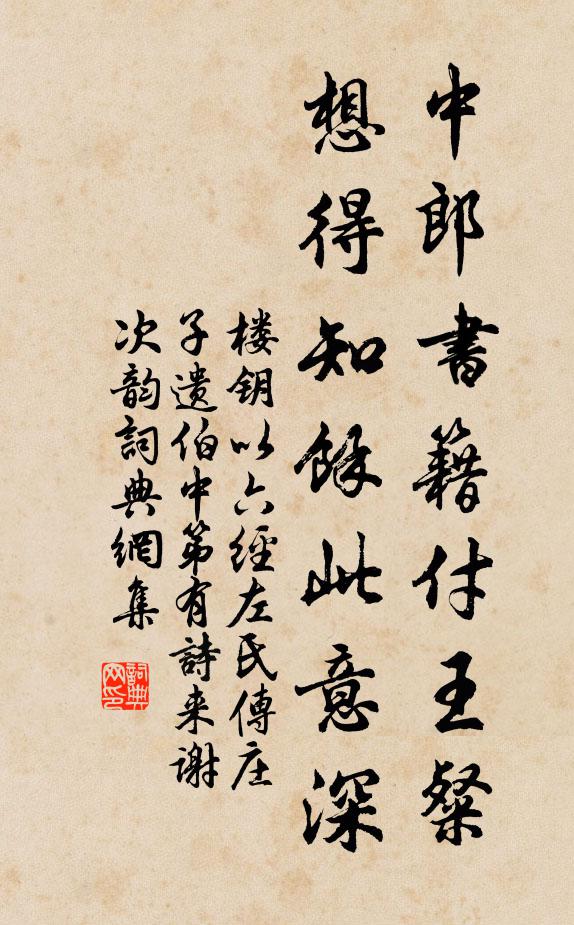 中郎書籍付王粲
想得知餘此意深
楼钥以六經左氏傳庄
子遗伯中第有詩来谢
次韵詞典網集
詞典网印